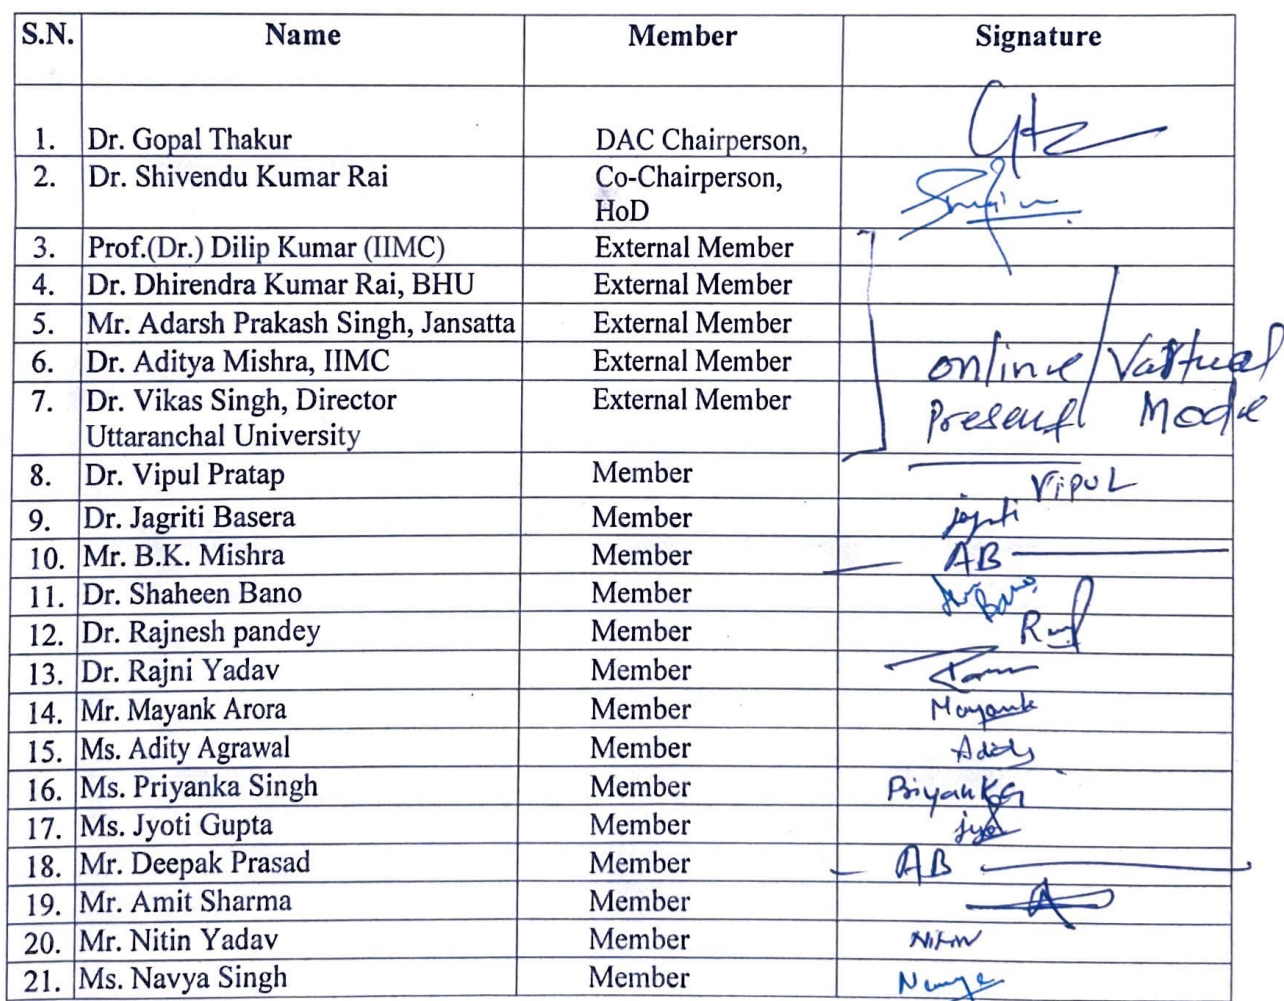 S.N. Name Member Signature
1. Dr. Gopal Thakur DAC Chairperson,
2. Dr. Shivendu Kumar Rai Co-Chairperson,
HoD
3. Prof.(Dr.) Dilip Kumar (IIMC) External Member
4. Dr. Dhirendra Kumar Rai, BHU External Member
5. Mr. Adarsh Prakash Singh, Jansatta External Member
6. Dr. Aditya Mishra, IIMC External Member online/Vartual
7. Dr. Vikas Singh, Director External Member Present Mode
Uttaranchal University
8. Dr. Vipul Pratap Member VipuL
9. Dr. Jagriti Basera Member
10. Mr. B.K. Mishra Member AB
11. Dr. Shaheen Bano Member Bano
12. Dr. Rajnesh pandey Member
13. Dr. Rajni Yadav Member
14. Mr. Mayank Arora Member Mayank
15. Ms. Adity Agrawal Member
16. Ms. Priyanka Singh Member Priyanka
17. Ms. Jyoti Gupta Member
18. Mr. Deepak Prasad Member AB
19. Mr. Amit Sharma Member
20. Mr. Nitin Yadav Member Nitin
21. Ms. Navya Singh Member